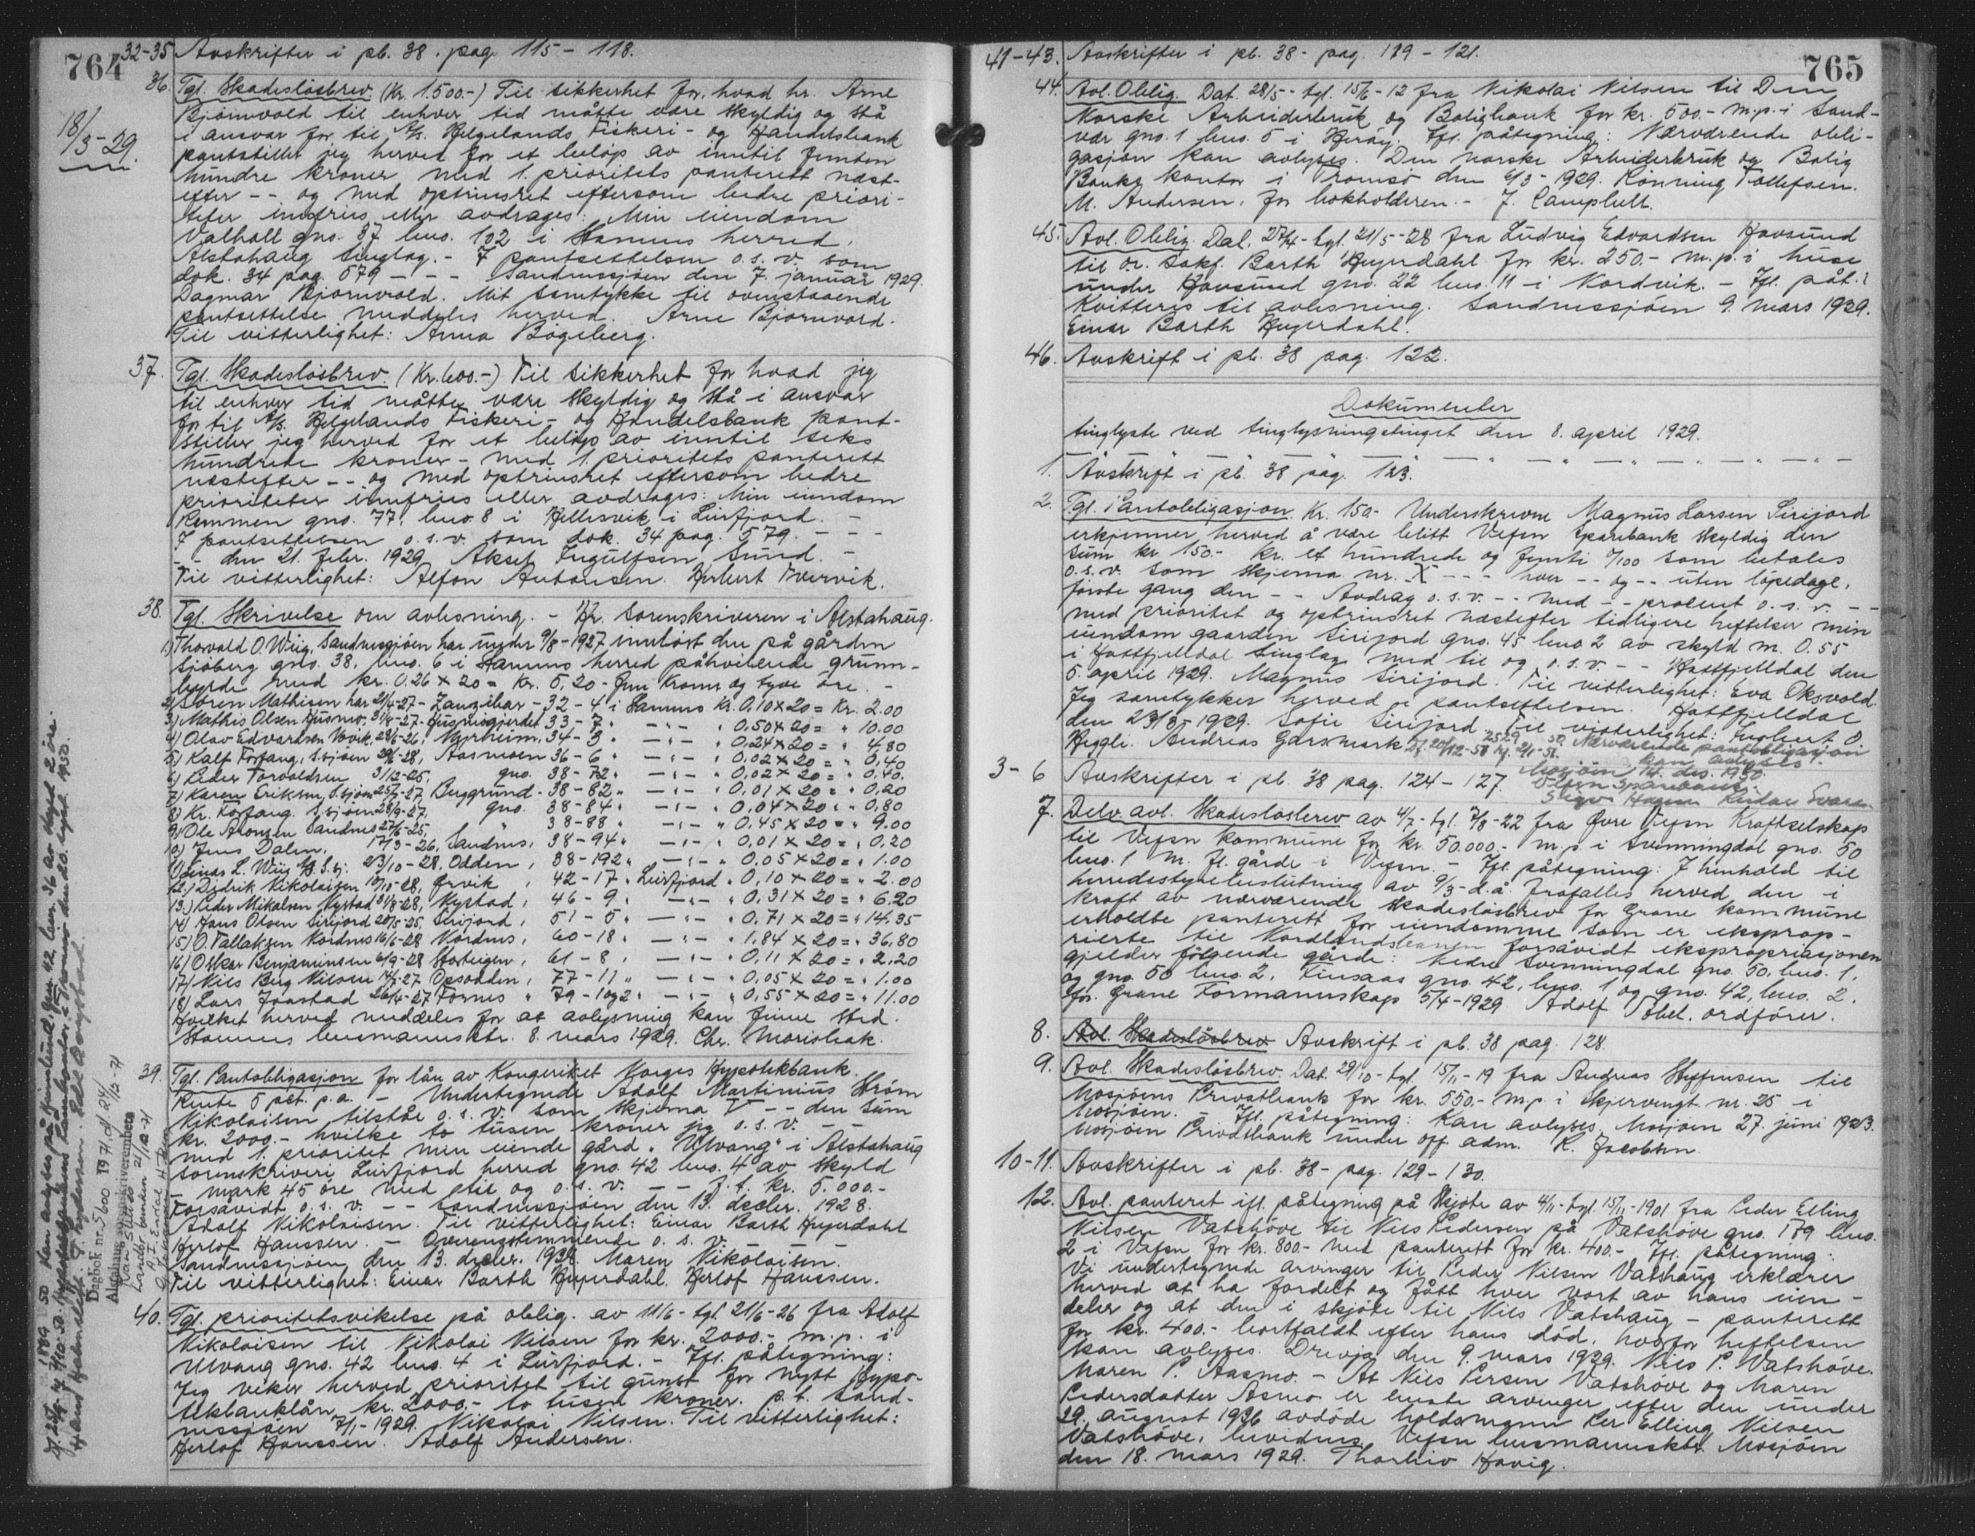 764
32-35 Avskrifter i pb. 38. pag. 115 - 118.
18/3-29.
36. Tgl. Skadesløsbrev (Kr. 1.500.-) Til sikkerhet for, hvad hr. Arne
Bjørnvold til enhver tid måtte være skyldig og stå
i ansvar for til A/S. Helgelands Fiskeri- og Handelsbank
pantstiller jeg herved for et beløp av inntil femten
hundre kroner med 1. prioritets panterett næst-
efter -- og med optrinsret eftersom bedre priori-
teter innfries eller avdrages: Min eiendom
Valhall gno. 37 bno. 102 i Stamnes herred,
Alstahaug tinglag. - I pantsettelsen o.s.v. som
dok. 34 pag. 579 - - - Sandnessjøen den 7. januar 1929.
Dagmar Bjørnvold. Mit samtykke til ovenstaaende
pantsettelse meddeles herved. Arne Bjørnvold.
Til vitterlighet: Anna Bøgeberg.
37. Tgl. Skadesløsbrev (Kr. 600.-) Til sikkerhet for hvad jeg
til enhver tid måtte være skyldig og stå i ansvar
for til A/S. Helgelands Fiskeri- og Handelsbank pant-
stiller jeg herved for et beløp av inntil seks
hundrede kroner - med 1. prioritets panterett
næstefter -- og med optrinsret eftersom bedre
prioriteter innfries eller avdrages: Min eiendom
Kammen gno. 77, bno. 8 i Hellesvik i Leirfjord. -
I pantsettelsen o.s.v. som dok. 34 pag. 579. - - -
- - den 21. febr. 1929. Aksel Ingulfsen Sund. -
Til vitterlighet: Alfon Antonsen. Herbert Tverrvik.
38. Tgl. Skrivelse om avlesning. - Hr. Sorenskriveren i Alstahaug.
1) Thorvald O. Wiig, Sandnessjøen har under 9/8-1927 innløst den på gården
Sjøberg gno. 38, bno. 6 i Stamnes herred påhvilende grunn-
byrde med kr. 0.26 x 20 = kr. 5,20 - fem kroner og tyve øre. -
2) Søren Mathisen har 21/4-27 - Zanzibar - 32 - 4 i Stamnes kr. 0.10 x 20 = Kr. 2.00
3) Mathis Olsen Husmo, 31/8-27- Husmogjerdet 33 - 7 " - " - " 0.50 x 20 = " 10.00
4) Olav Edvardsen Vovik, 28/6-26, Myrheim, 34 - 3 " - " - " 0,24 x 20 = " 4.80
5) Ralf Forfang, S.sjøen 29/8-28, Aasmoen 36 - 6 " - " - " 0,02 x 20 = " 0,40
6) Peder Torvaldsen 31/12-25, gno. 38 - 72 " - " - " 0,02 x 20 = " 0,40.
7) Karen Eriksen, S.sjøen 25/7-27, Berggrund - 38 - 82 " - " - " 0,01 x 20 = " 0,20
8) Kr. Forfang, S.sjøen 28/9-27, gno. 38 - 84 " - " - " 0,04 x 20 = " 0,80
9) Ole Aronsen Sandnes 27/6-25, " 38 - 88 " - " - " 0,45 x 20 = " 9.00
10) Jens Dalen, 17/3-26, Sandnes, 38 - 94 " - " - " 0,01 x 20 = " 0,20
11) Einas L. Wiig A/S S.sj. 23/10-28, Odden, 38 - 192 " - " - " 0,05 x 20 = " 1.00
12.) Didrik Nikolaisen 10/10-28, Ørvik, 42 - 17 " Leirfjord " 0,10 x 20 = " 2.00
13.) Peder Mikalsen Nystad 31/8-28, Nystad, 46 - 9 " - " - " 0,31 x 20 = " 6.20
14) Hans Olsen Sirijord 20/5-25, Sirijord, 51 - 5 " - " - " 0,71 x 20 = " 14.35
15) O. Tallaksen Nordnes 16/6-28 Nordnes, 60 - 18 " - " - " 1,84 x 20 = " 36,80
16) Oskar Benjaminsen 6/9-28 Storteigen, 61 - 8 " - " - " 0,11 x 20 = " 2,20
17) Nils Berg Nilssen 14/7-27 Opsodden, 77 - 11 " - " - " 0,05 x 20 = " 1.00
18) Lars Jonstad 26/4-27 Fornes " 79 - 1og2 " - " - " 0,55 x 20 = " 11.00
Hvilket herved meddeles for at avlysning kan finne sted.
Stamnes lensmannsktr. 8. mars 1929. Chr. Morisbak.
39. Tgl. Pantobligasjon for lån av Kongeriket Norges Hypotekbank.
Rente 5 pct. p.a. - Undertegnede Adolf Martinius Strøm
Nikolaisen tilstår o.s.v. som skjema V -- den sum
kr. 2000.- hvilke to tusen kroner jeg o.s.v. - -
med 1. prioritet min eiende gård. "Ulvang" i Alstahaug
sorenskriveri, Leirfjord herred gno. 42 bno. 4 av skyld
- mark 45 øre med til og o.s.v. - - I.t. kr. 5.000.-
Forsåvidt o.s.v. - - Sandnessjøen den 13. decbr. 1928.
Adolf Nikolaisen. Til vitterlighet: Einar Barth Heyerdahl
Herlof Hanssen. - Overensstemmende o.s.v.
Sandnessjøen den 13. decbr. 1928. Maren Nikolaisen.
Til vitterlighet: Einar Barth Heyerdahl. Herlof Hanssen.
40. Tgl. prioritetsvikelse på oblig. av 11/6 - tgl. 21/6-26 fra Adolf
Nikolaisen til Nikolai Nilsen for kr. 2000.- m.p. i
Ulvang gno. 42 bno. 4 i Leirfjord. - Ifl. påtegning:
Jeg viker herved prioritet til gunst for nytt hypo-
tekbanklån kr. 2000.- to tusen kroner. p.t. Sand-
nessjøen 7/1-1929. Nikolai Nilsen. Til vitterlighet:
Herlof Hanssen. Adolf Andersen.
Dagbok nr. 5600 1971, d. 24/
Alstahaug sorenskriverembete
765
41-43. Avskrifter i pb. 38- pag. 119 - 121.
44. Avl. Oblig. Dat. 28/5 - tgl. 15/6-12 fra Nikolai Nilsen til Den
Norske Arbeiderbruk og Boligbank for kr. 500.- m.p. i Sand-
vær gno. 1 bno. 5 i Herøy. Ifl. påtegning: Nærværende obli-
gasjon kan avlyses. Den norske Arbeiderbruk og Bolig
Banks kontor i Tromsø den 6/3-1929. Rönning Tollefsen.
M. Andersen, for bokholderen. - J. Campbell.
45. Avl. Oblig. Dat. 27/4 - tgl. 21/5-28 fra Ludvig Edvardsen Havsund
til o.r. sakf. Barth Heyerdahl for kr. 250.- m.p. i huse
under Havsund gno. 22 bno. 11 i Nordvik. - Ifl. påt.:
Kvitteres til avlesning. Sandnessjøen 9. mars 1929.
Einar Barth Heyerdahl.
46. Avskrift i pb. 38 pag. 122.
Dokumenter
tinglyste ved tinglysningstinget den 8. april 1929.
1. Avskrift i pb. 38 pag. 123.
2. Tgl. Pantobligasjon. Kr. 150.- Underskrevne Magnus Larsen Sirijord
erkjenner herved å være blitt Vefsn Sparebank skyldig den
sum kr. 150.- kr. et hundrede og femti 0/100 som betales
o.s.v. som skjema nr. X - - - hver -- og -- uten løpedage,
første gang den - - Avdrag o.s.v. -- med -- procent o.s.v. - -
med prioritet og optrinsret næstefter tidligere heftelser min
eiendom gaarden Sirijord gno. 45 bno 2 av skyld m. 0.55
i Hattfjelldal tinglag med til og o.s.v. - - Hattfjelldal den
5. april 1929. Magnus Sirijord. Til vitterlighet: Eva Oksvold.
Jeg samtykker herved i pantsettelsen. Hattfjelldal
den 23/3-1929. Sofie Sirijord. Til vitterlighet: Ingbert O.
Heggli. Andreas Garsmark.
Nærværende pantobligasjon
kan avlyses.
Mosjøen 14. des. 1950.
Vefsn Sparebank.
3-6 Avskrifter i pb. 38 pag. 124 - 127.
7. Delv. avl. Skadesløsbrev av 4/7 - tgl. 7/8-22 fra Øvre Vefsn Kraftselskap
til Vefsn kommune for kr. 50.000.- m.p. i Svenningdal gno. 50
bno. 1 m. fl. gårde i Vefsn. - Ifl. påtegning: I henhold til
herredsstyrebeslutning av 9/3-d.å. frafalles herved den i
kraft av nærværende skadesløsbrev for Grane kommune
erholdte panterett for eiendomme som er eksprop-
rierte til Nordlandsbanen forsåvidt ekspropriasjonen
gjelder følgende gårde: Nedre Svenningdal gno. 50, bno. 1,
og gno. 50 bno. 2, Kinsaas gno. 42, bno. 1 og gno. 42, bno. 2.
For Grane Formannskap 5/4-1929. Adolf Abel. ordfører.
8. Avl. Skadesløsbrev Avskrift i pb. 38 pag. 128.
9. Avl. Skadesløsbrev. Dat. 29/10 - tgl. 15/11-19 fra Andreas Steffensen til
Mosjøens Privatbank for kr. 550.- m.p. i Skjervengt. nr. 25 i
Mosjøen. - Ifl. påtegning: Kan avlyses. Mosjøen 27. juni 1923.
Mosjøen Privatbank under off. adm. K. Jacobsen.
10-11. Avskrifter i pb. 38 - pag. 129 - 130.
12. Avl. panteret ifl. påtegning på skjøte av 4/11 - tgl. 15/11-1901 fra Peder Elling
Nilsen Vatshøve til Nils Pedersen på Vatshøve gno. 179 bno.
2 i Vefsn for kr. 800.- med panterett for kr. 400.- Ifl. påtegning:
Vi undertegnede arvinger til Peder Nilsen Vatshaug erklærer
herved at ha fordelt og fått hver vort av hans eien-
deler og at den i skjøte til Nils Vatshaug - panterett
for kr. 400.- bortfaldt efter hans død, hvorfor heftelsen
kan avlyses. Drevja den 9. mars 1929. Nils P. Vatshøve.
Maren P. Aasmo. - At Nils Persen Vatshøve og Maren
Pedersdatter Asmo er eneste arvinger efter den under
29. august 1926 avdøde holdsmann Per Elling Nilsen
Vatshøve, bevidnes. Vefsn lensmannsktr. Mosjøen
den 18. mars 1929. Thorleiv Havig.